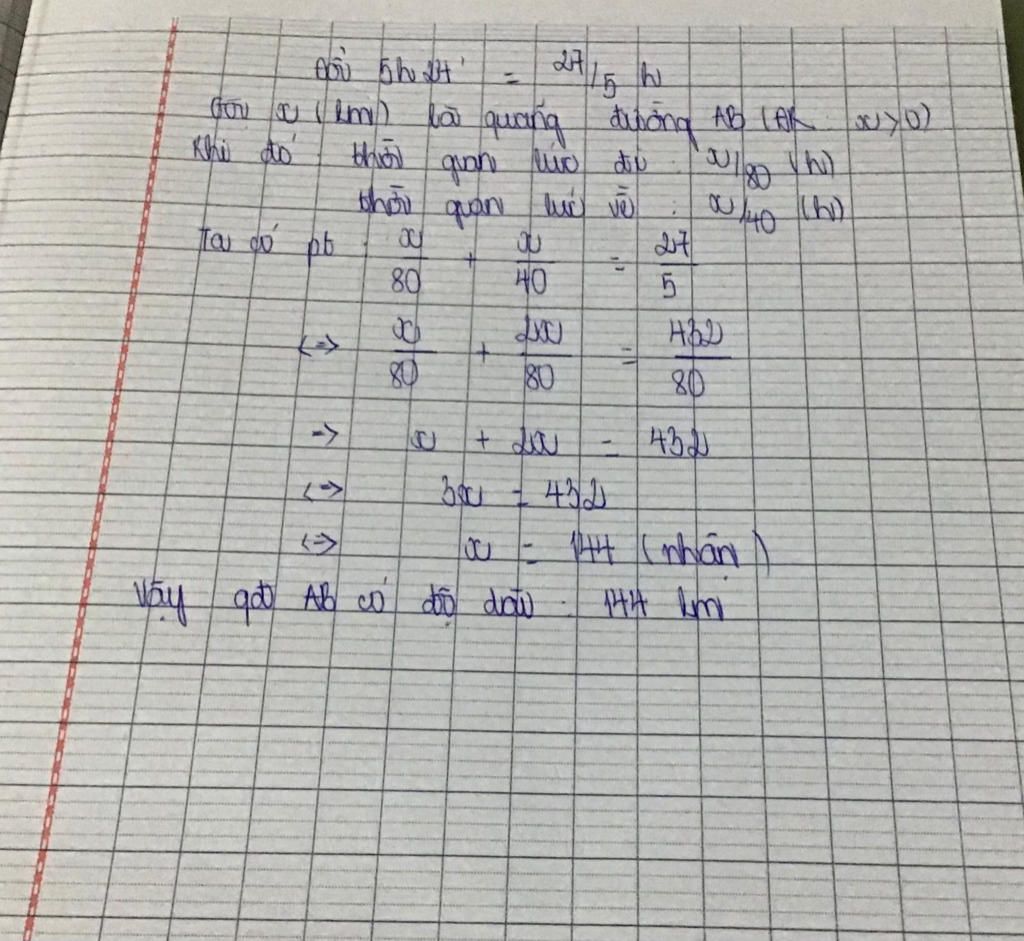 Đổi 5h 24' = 27/5 h
Gọi x (km) là quãng đường AB (ĐK: x > 0)
Khi đó thời quan lúc đi : x/80 (h)
thời quan lúc về : x/40 (h)
Ta có pt : x/80 + x/40 = 27/5
<=> x/80 + 2x/80 = 432/80
=> x + 2x = 432
<=> 3x = 432
<=> x = 144 (nhận)
Vậy qđ AB có độ dài : 144 km